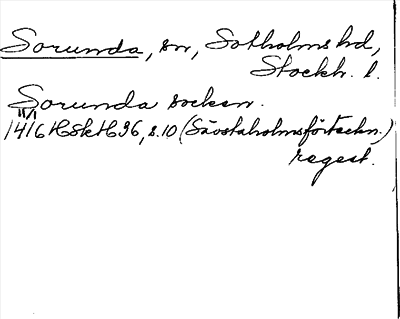 Sorunda, sn, Sotholms hd,
Stockh. l.
Sorunda socken.
11/1
1416 HSkH 36, s. 10 (Sävstaholmsförteckn.)
regest.